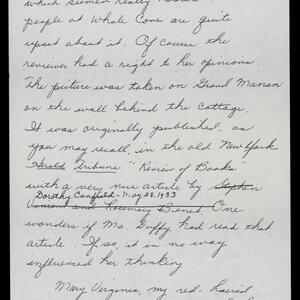 which seemed really
people at Whale Cove are quite
upset about it. Of course the
reviewer had a right to her opinions.
The picture was taken on Grand Manan
on the wall behind the cottage.
It was originally published, as
you may recall, in the old New York
Herald Tribune "Review of Books"
with a very nice article by Stephen
Dorothy Canfield - May 28, 1933
Vincent and Rosemary Benet One
wonders if Ms. Duffy had read that
article. If so, it in no way
influenced her thinking
Mary Virginia, my red-haired